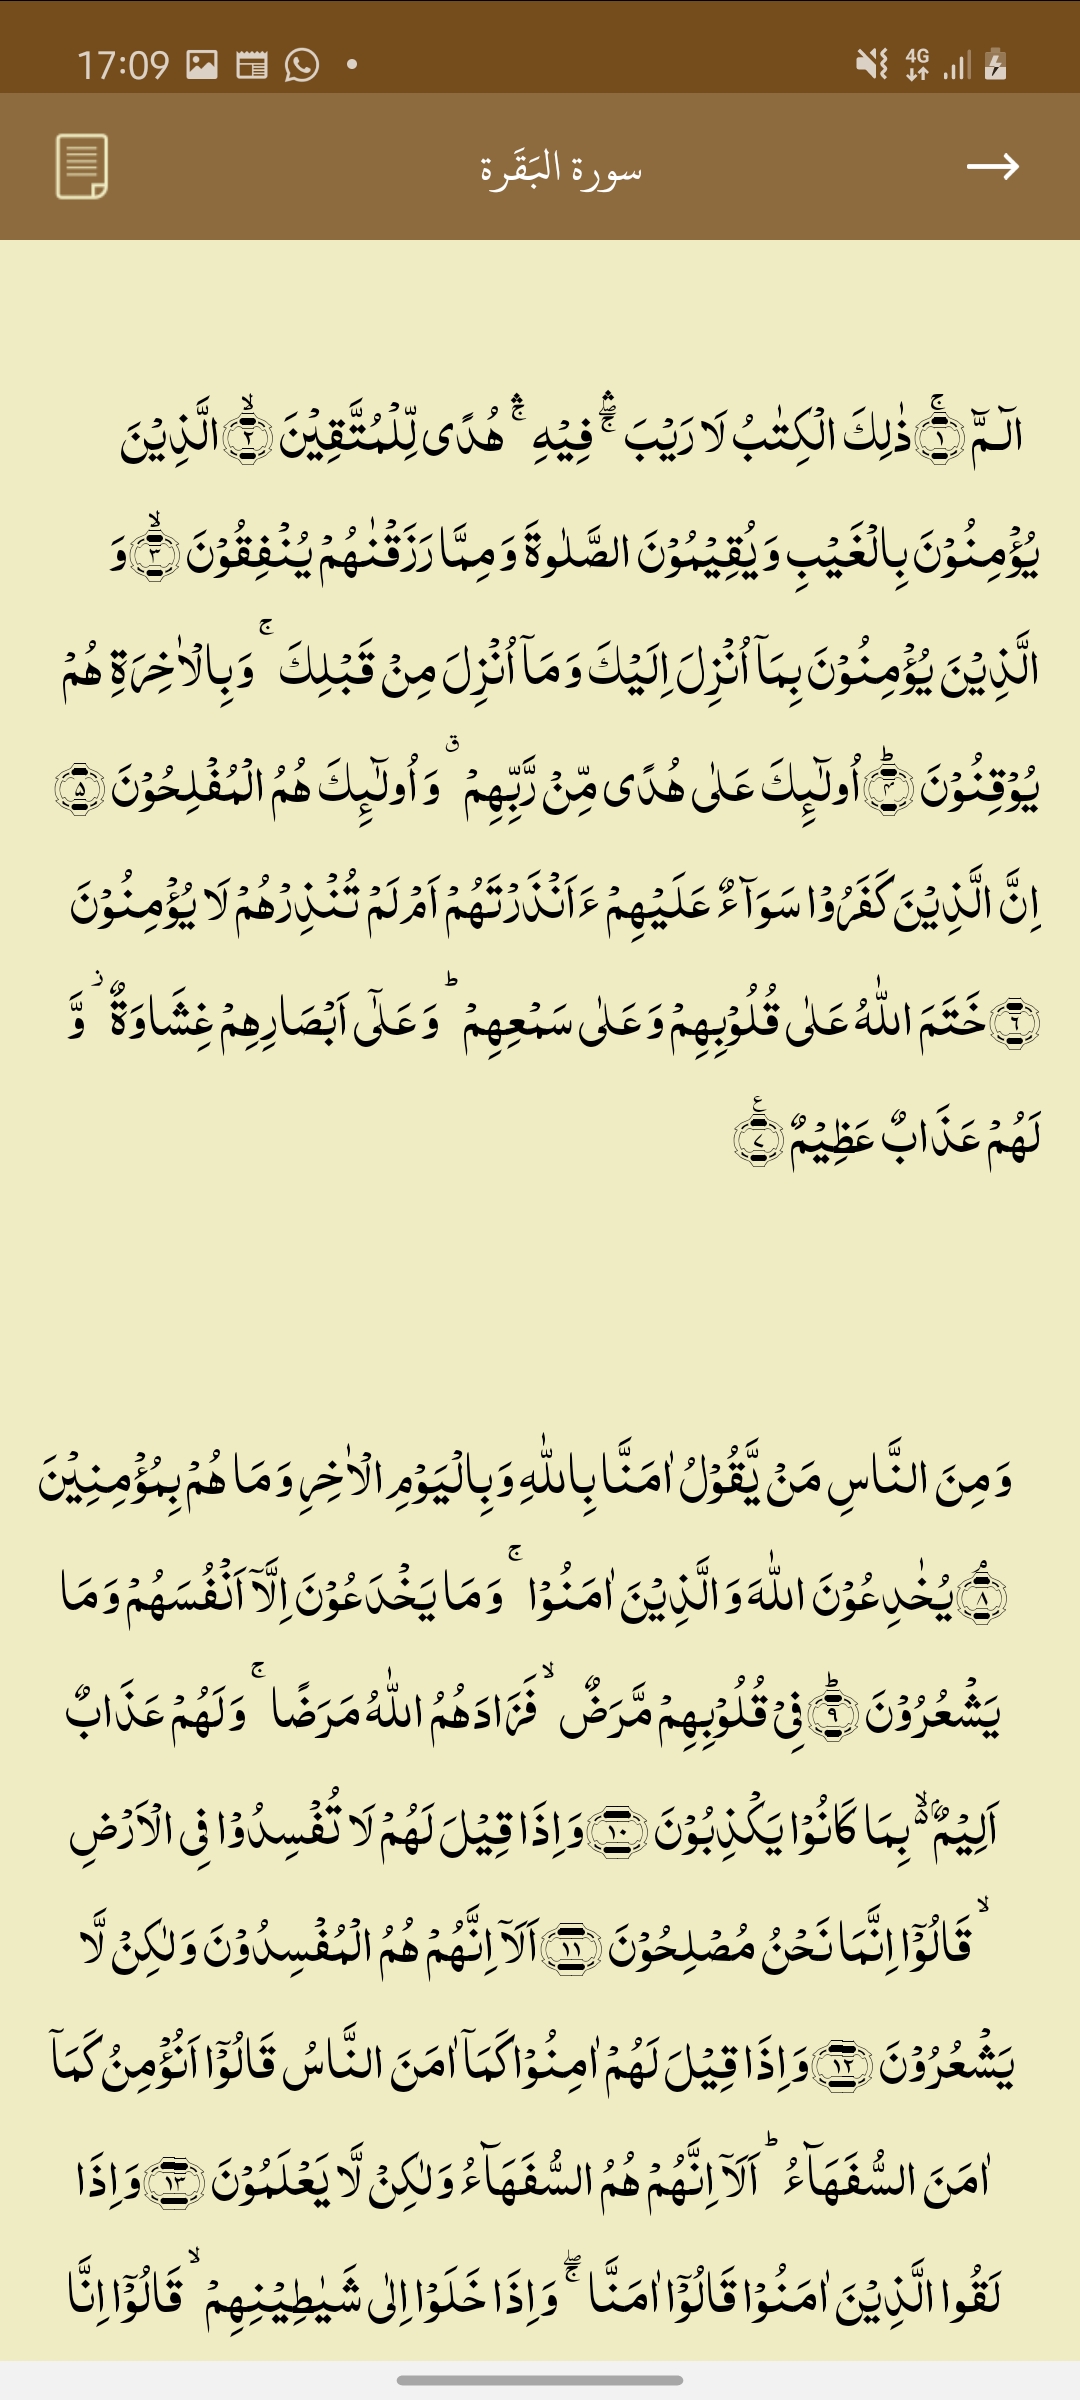 17:09
4G
سورة البَقَرة
الٓـمّٓ ۚ‏﴿۱﴾ ذٰلِكَ الۡڪِتٰبُ لَا رَيۡبَ ۛۖۚ فِيۡهِ ۛۚ هُدًى لِّلۡمُتَّقِيۡنَ ۙ‏﴿۲﴾ الَّذِيۡنَ
يُؤۡمِنُوۡنَ بِالۡغَيۡبِ وَ يُقِيۡمُوۡنَ الصَّلٰوةَ وَمِمَّا رَزَقۡنٰهُمۡ يُنۡفِقُوۡنَ ۙ‏﴿۳﴾ وَ
الَّذِيۡنَ يُؤۡمِنُوۡنَ بِمَآ اُنۡزِلَ اِلَيۡكَ وَمَآ اُنۡزِلَ مِنۡ قَبۡلِكَ ۚ وَبِالۡاٰخِرَةِ هُمۡ
يُوۡقِنُوۡنَ ؕ‏﴿۴﴾ اُولٰٓٮِٕكَ عَلٰى هُدًى مِّنۡ رَّبِّهِمۡ ۙ‏ٯ وَاُولٰٓٮِٕكَ هُمُ الۡمُفۡلِحُوۡنَ ‏﴿۵﴾
اِنَّ الَّذِيۡنَ كَفَرُوۡا سَوَآءٌ عَلَيۡهِمۡ ءَاَنۡذَرۡتَهُمۡ اَمۡ لَمۡ تُنۡذِرۡهُمۡ لَا يُؤۡمِنُوۡنَ
‏﴿۶﴾ خَتَمَ اللّٰهُ عَلٰى قُلُوۡبِهِمۡ وَعَلٰى سَمۡعِهِمۡ ؕ وَعَلٰٓى اَبۡصَارِهِمۡ غِشَاوَةٌ ز وَّ
لَهُمۡ عَذَابٌ عَظِيۡمٌ ع‏﴿۷﴾
وَمِنَ النَّاسِ مَنۡ يَّقُوۡلُ اٰمَنَّا بِاللّٰهِ وَبِالۡيَوۡمِ الۡاٰخِرِ وَمَا هُمۡ بِمُؤۡمِنِيۡنَ
ۘ‏﴿۸﴾ يُخٰدِعُوۡنَ اللّٰهَ وَالَّذِيۡنَ اٰمَنُوۡا ۚ وَمَا يَخۡدَعُوۡنَ اِلَّاۤ اَنۡفُسَهُمۡ وَمَا
يَشۡعُرُوۡنَ ؕ‏﴿۹﴾ فِىۡ قُلُوۡبِهِمۡ مَّرَضٌ ۙ فَزَادَهُمُ اللّٰهُ مَرَضًا ۚ وَلَهُمۡ عَذَابٌ
اَلِيۡمٌ ۢ ۙ بِمَا كَانُوۡا يَكۡذِبُوۡنَ ‏﴿۱۰﴾ وَاِذَا قِيۡلَ لَهُمۡ لَا تُفۡسِدُوۡا فِى الۡاَرۡضِ
ۙ قَالُوۡاۤ اِنَّمَا نَحۡنُ مُصۡلِحُوۡنَ ‏﴿۱۱﴾ اَلَاۤ اِنَّهُمۡ هُمُ الۡمُفۡسِدُوۡنَ وَلٰـكِنۡ لَّا
يَشۡعُرُوۡنَ ‏﴿۱۲﴾ وَاِذَا قِيۡلَ لَهُمۡ اٰمِنُوۡا كَمَاۤ اٰمَنَ النَّاسُ قَالُوۡاۤ اَنُؤۡمِنُ كَمَاۤ
اٰمَنَ السُّفَهَآءُ ؕ اَلَاۤ اِنَّهُمۡ هُمُ السُّفَهَآءُ وَلٰـكِنۡ لَّا يَعۡلَمُوۡنَ ‏﴿۱۳﴾ وَاِذَا
لَقُوا الَّذِيۡنَ اٰمَنُوۡا قَالُوۡاۤ اٰمَنَّا ۖۚ وَاِذَا خَلَوۡا اِلٰى شَيٰطِيۡنِهِمۡ ۙ قَالُوۡاۤ اِنَّا